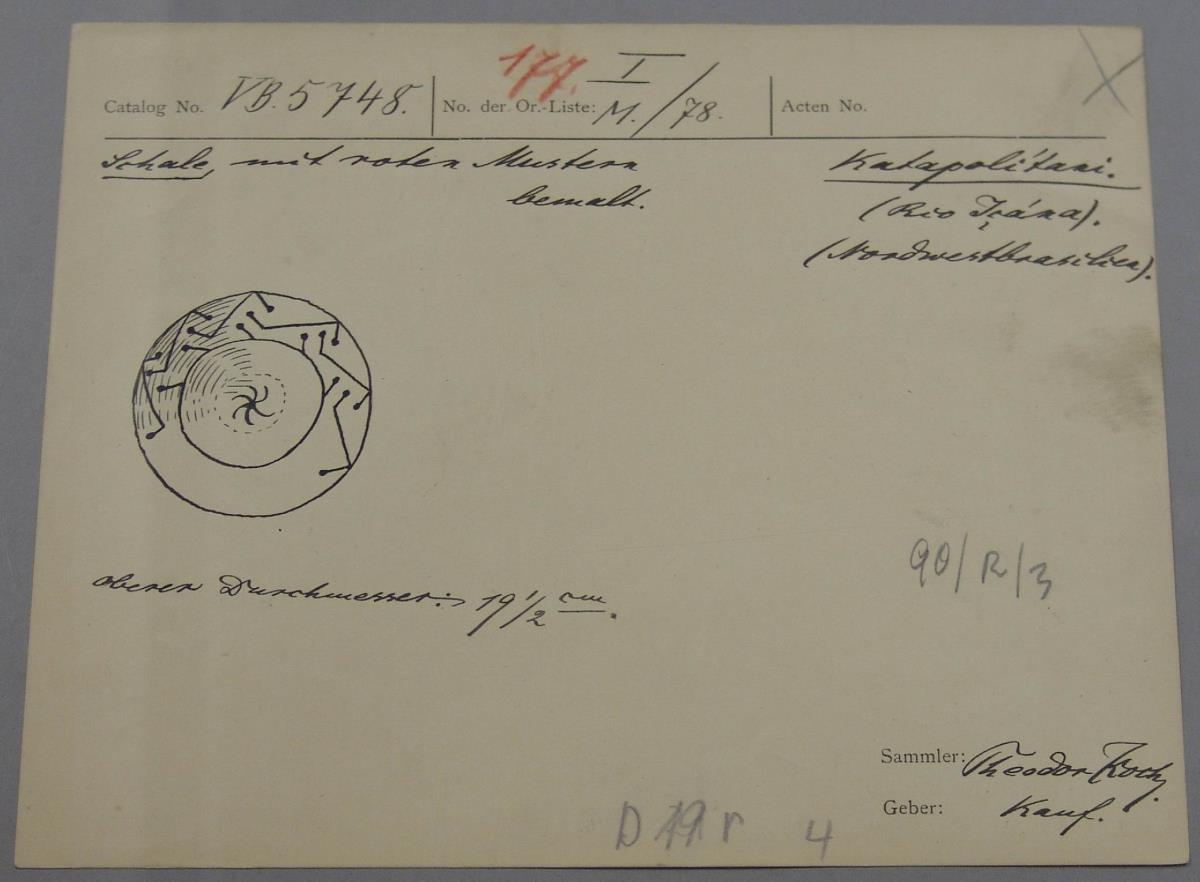 177. I
Catalog No. VB. 5748. No. der Or.-Liste: M./78. Acten No.
Schale, mit roten Mustern
bemalt.
Katapolítani.
(Rio Içána).
(Nordwestbrasilien).
oberer Durchmesser: 19 1/2 cm.
90/R/3
Sammler: Theodor Koch.
Geber: Kauf.
D 19 r 4